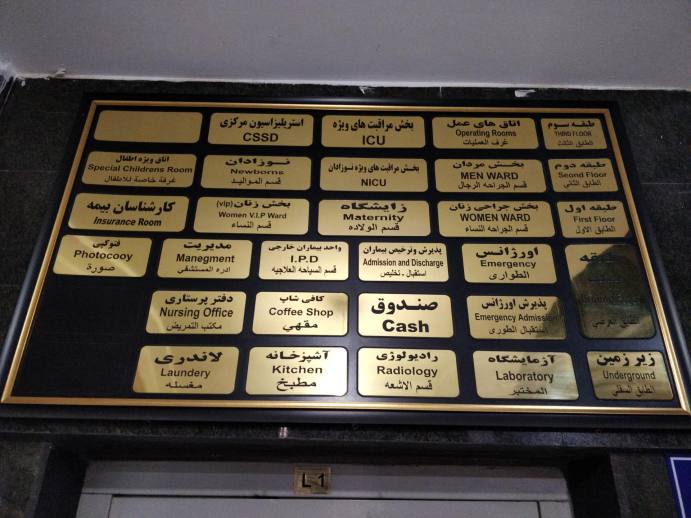 طبقه سوم
THIRD FLOOR
الطابق الثالث
اتاق های عمل
Operating Rooms
غرف العملیات
بخش مراقبت های ویژه
ICU
استریلیزاسیون مرکزی
CSSD
طبقه دوم
Seond Floor
الطابق الثاني
بخش مردان
MEN WARD
قسم الجراحه الرجال
بخش مراقبت های ویژه نوزادان
NICU
نوزادان
Newborns
قسم الموالید
اتاق ویژه اطفال
Special Childrens Room
غرفة خاصة للاطفال
طبقه اول
First Floor
الطابق الاول
بخش جراحی زنان
WOMEN WARD
قسم الجراحه النساء
زایشگاه
Maternity
قسم الولاده
بخش زنان (vip)
Women V.I.P Ward
قسم النساء
کارشناسان بیمه
Insurance Room
اورژانس
Emergency
الطواری
پذیرش وترخیص بیماران
Admission and Discharge
استقبال - تخلیص
واحد بیماران خارجی
I.P.D
قسم السیاحه العلاجیه
مدیریت
Manegment
ادره المستشفی
فتوکپی
Photocooy
صورة
پذیرش اورژانس
Emergency Admission
استقبال الطوری
صندوق
Cash
کافی شاپ
Coffee Shop
مقهی
دفتر پرستاری
Nursing Office
مکتب التمریض
زیر زمین
Underground
الطابق السفلی
آزمایشگاه
Laboratory
المختبر
رادیولوژی
Radiology
قسم الاشعه
آشپزخانه
Kitchen
مطبخ
لاندری
Laundery
مغسله
L-1